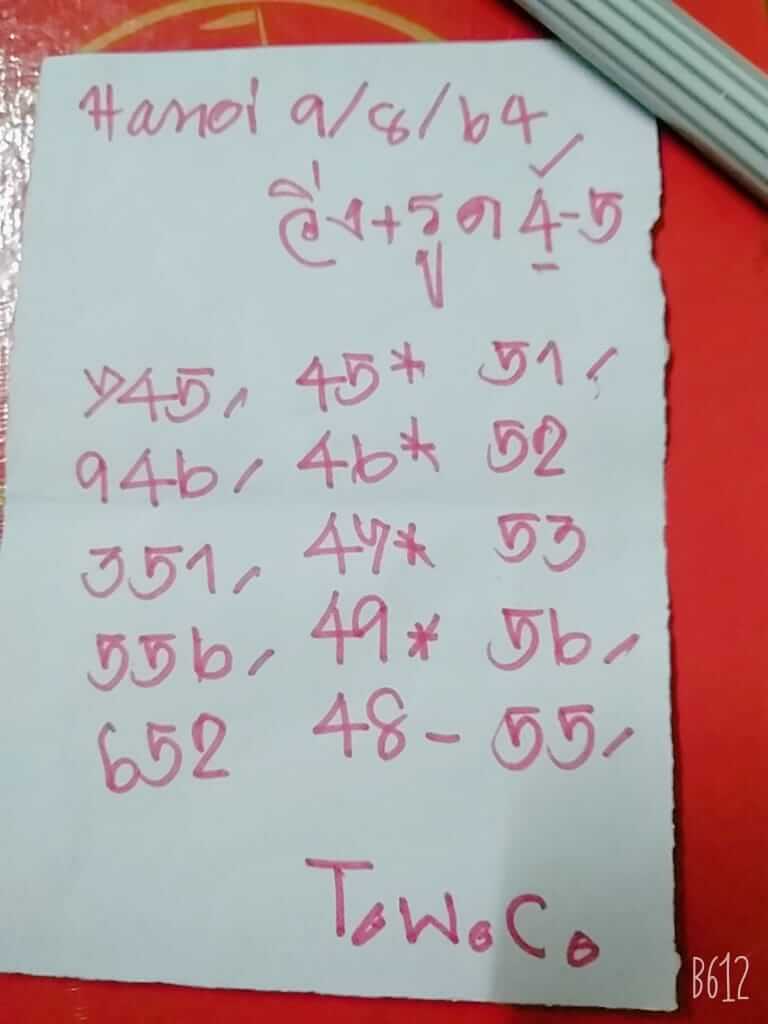 Hanoi 9/8/64
วิ่ง+รูด 4-5
745, 45* 51,
946, 46* 52
351, 47* 53
556, 49* 56,
652 48- 55,
T.W.C.
B612